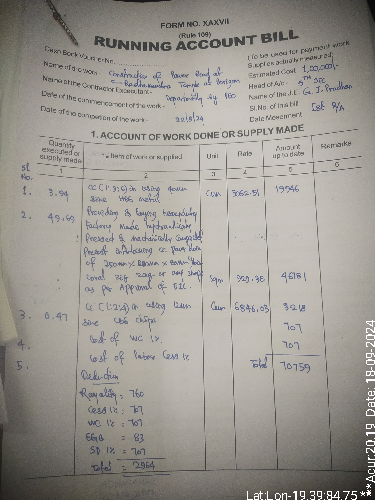 FORM NO. XAXVII
(Rule 109)
RUNNING ACCOUNT BILL
Cash Book Voucher No.
(To be used for payment work
Supplies actually measured)
Name of the work - Construction of Paver Road at
Radhamadhav Temple at
Estimated Cost 1,00,000/-
Name of the Contractor Executant - Departmentally by PEO
Head of A/c - 5TH SFC
Name of the J.E. G. I. Pradhan
Date of the commencement of the work -
Sl. No. of this bill 1st R/A
Date of the completion of the work - 20/8/24
Date Mesement
1. ACCOUNT OF WORK DONE OR SUPPLY MADE
Sl No. Quantity executed or supply made Item of work or supplied Unit Rate Amount up to date Remarks
1 2 3 4 5 6
1. 3.94 CC (1:3:6) in using 4cm Cum 5062.51 19946
size HBG metal
2. 49.69 Providing & laying
factory made hydraulically
Pressed & mechanically
of 200mm x
zig zag or any shape Sqm 929.38 46181
as per Approval of EIC.
3. 0.47 CC (1:2:4) in using 12mm Cum 6846.03 3218
size HBG chips
4. Cost of WC 1%. 707
5. Cost of labour Cess 1% 707
Total 70759
Deduction
Royality = 760
Cess 1% = 707
WC 1% = 707
= 83
SD 1% = 707
Total = 2964
Lat:Lon-19.39:84.75
***Acur:20.19 Date :18-09-2024